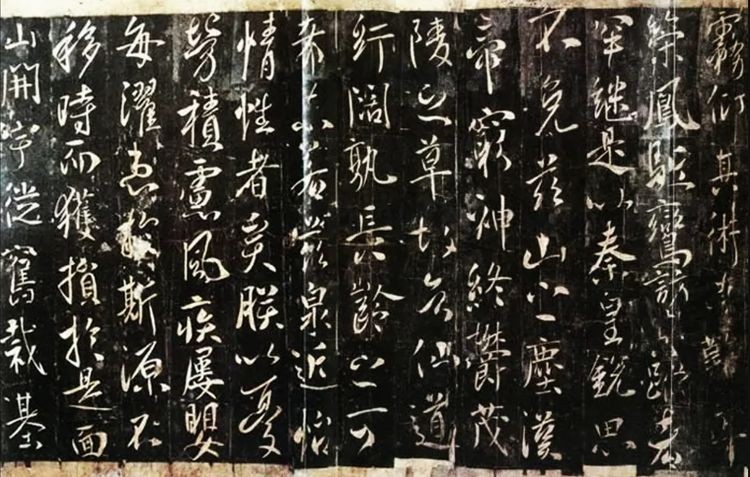 霧衍其術者
縈鳳駐鸞訪之
罕繼是以秦皇銳思
不免茲山之塵漢
帝窮神終鬱茂
陵之草故知仙道
紆闊孰長齡之可
希豈若茲泉近怡
情性者矣朕以憂
勞積慮風疾屢嬰
每濯患於斯源不
移時而獲損於是面
山開宇從舊裁基